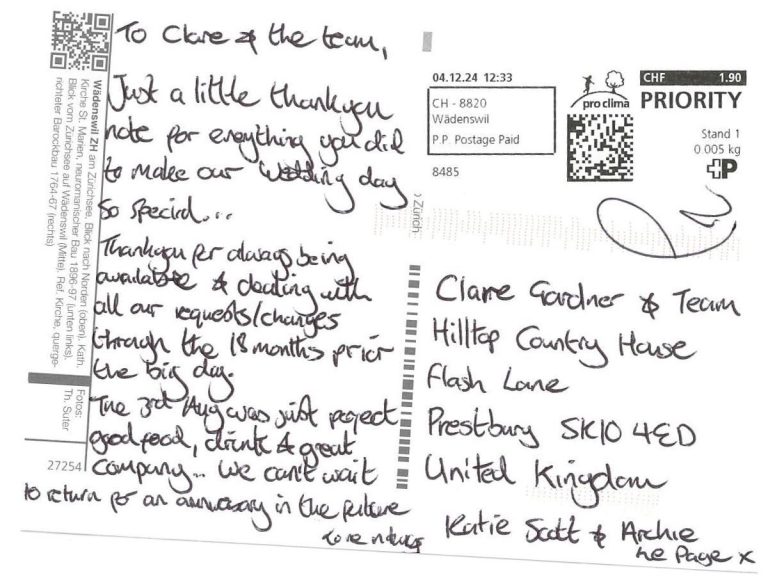 To Clare & the team,
Just a little thankyou
note for everything you did
to make our wedding day
so special...
Thankyou for always being
available & dealing with
all our requests/changes
through the 18 months prior
the big day.
The 3rd Aug was just perfect
good food, drink & great
company... We can't wait
to return for an anniversary in the future
Wädenswil ZH am Zürichsee. Blick nach Norden (oben). Kath.
Kirche St. Marien, neuromanischer Bau 1896-97 (unten links).
Blick vom Zürichsee auf Wädenswil (Mitte). Ref. Kirche, querge-
richteter Barockbau 1764-67 (rechts)
Fotos:
Th. Suter
27254
Zürich
04.12.24 12:33
CH - 8820
Wädenswil
P.P. Postage Paid
8485
pro clima
CHF 1.90
PRIORITY
Stand 1
0.005 kg
P
Claire Gardner & Team
Hilltop Country House
Flash Lane
Prestbury SK10 4ED
United Kingdom
Katie Scott & Archie
Le Page x